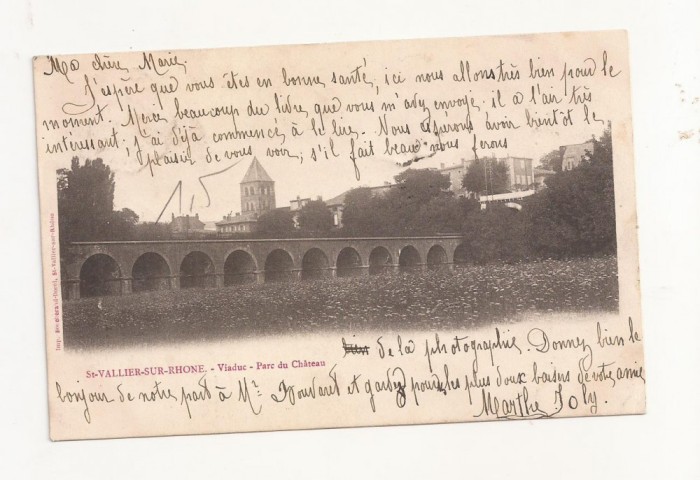 Ma chère Marie.
J'espère que vous êtes en bonne santé, ici nous allons très bien pour le
moment. Merci beaucoup du livre que vous m'avez envoyé. il a l'air très
interessant. j'ai déjà commencé à le lire. Nous espérons avoir bientôt le
plaisir de vous voir, s'il fait beau nous ferons
1.5
St-VALLIER-SUR-RHONE. - Viaduc - Parc du Château
bien de la photographie. Donnez bien le
bonjour de notre part à Mr. et gardez pour les plus doux baisers de votre amie
Marthe Joly.
St-Vallier-sur-Rhône